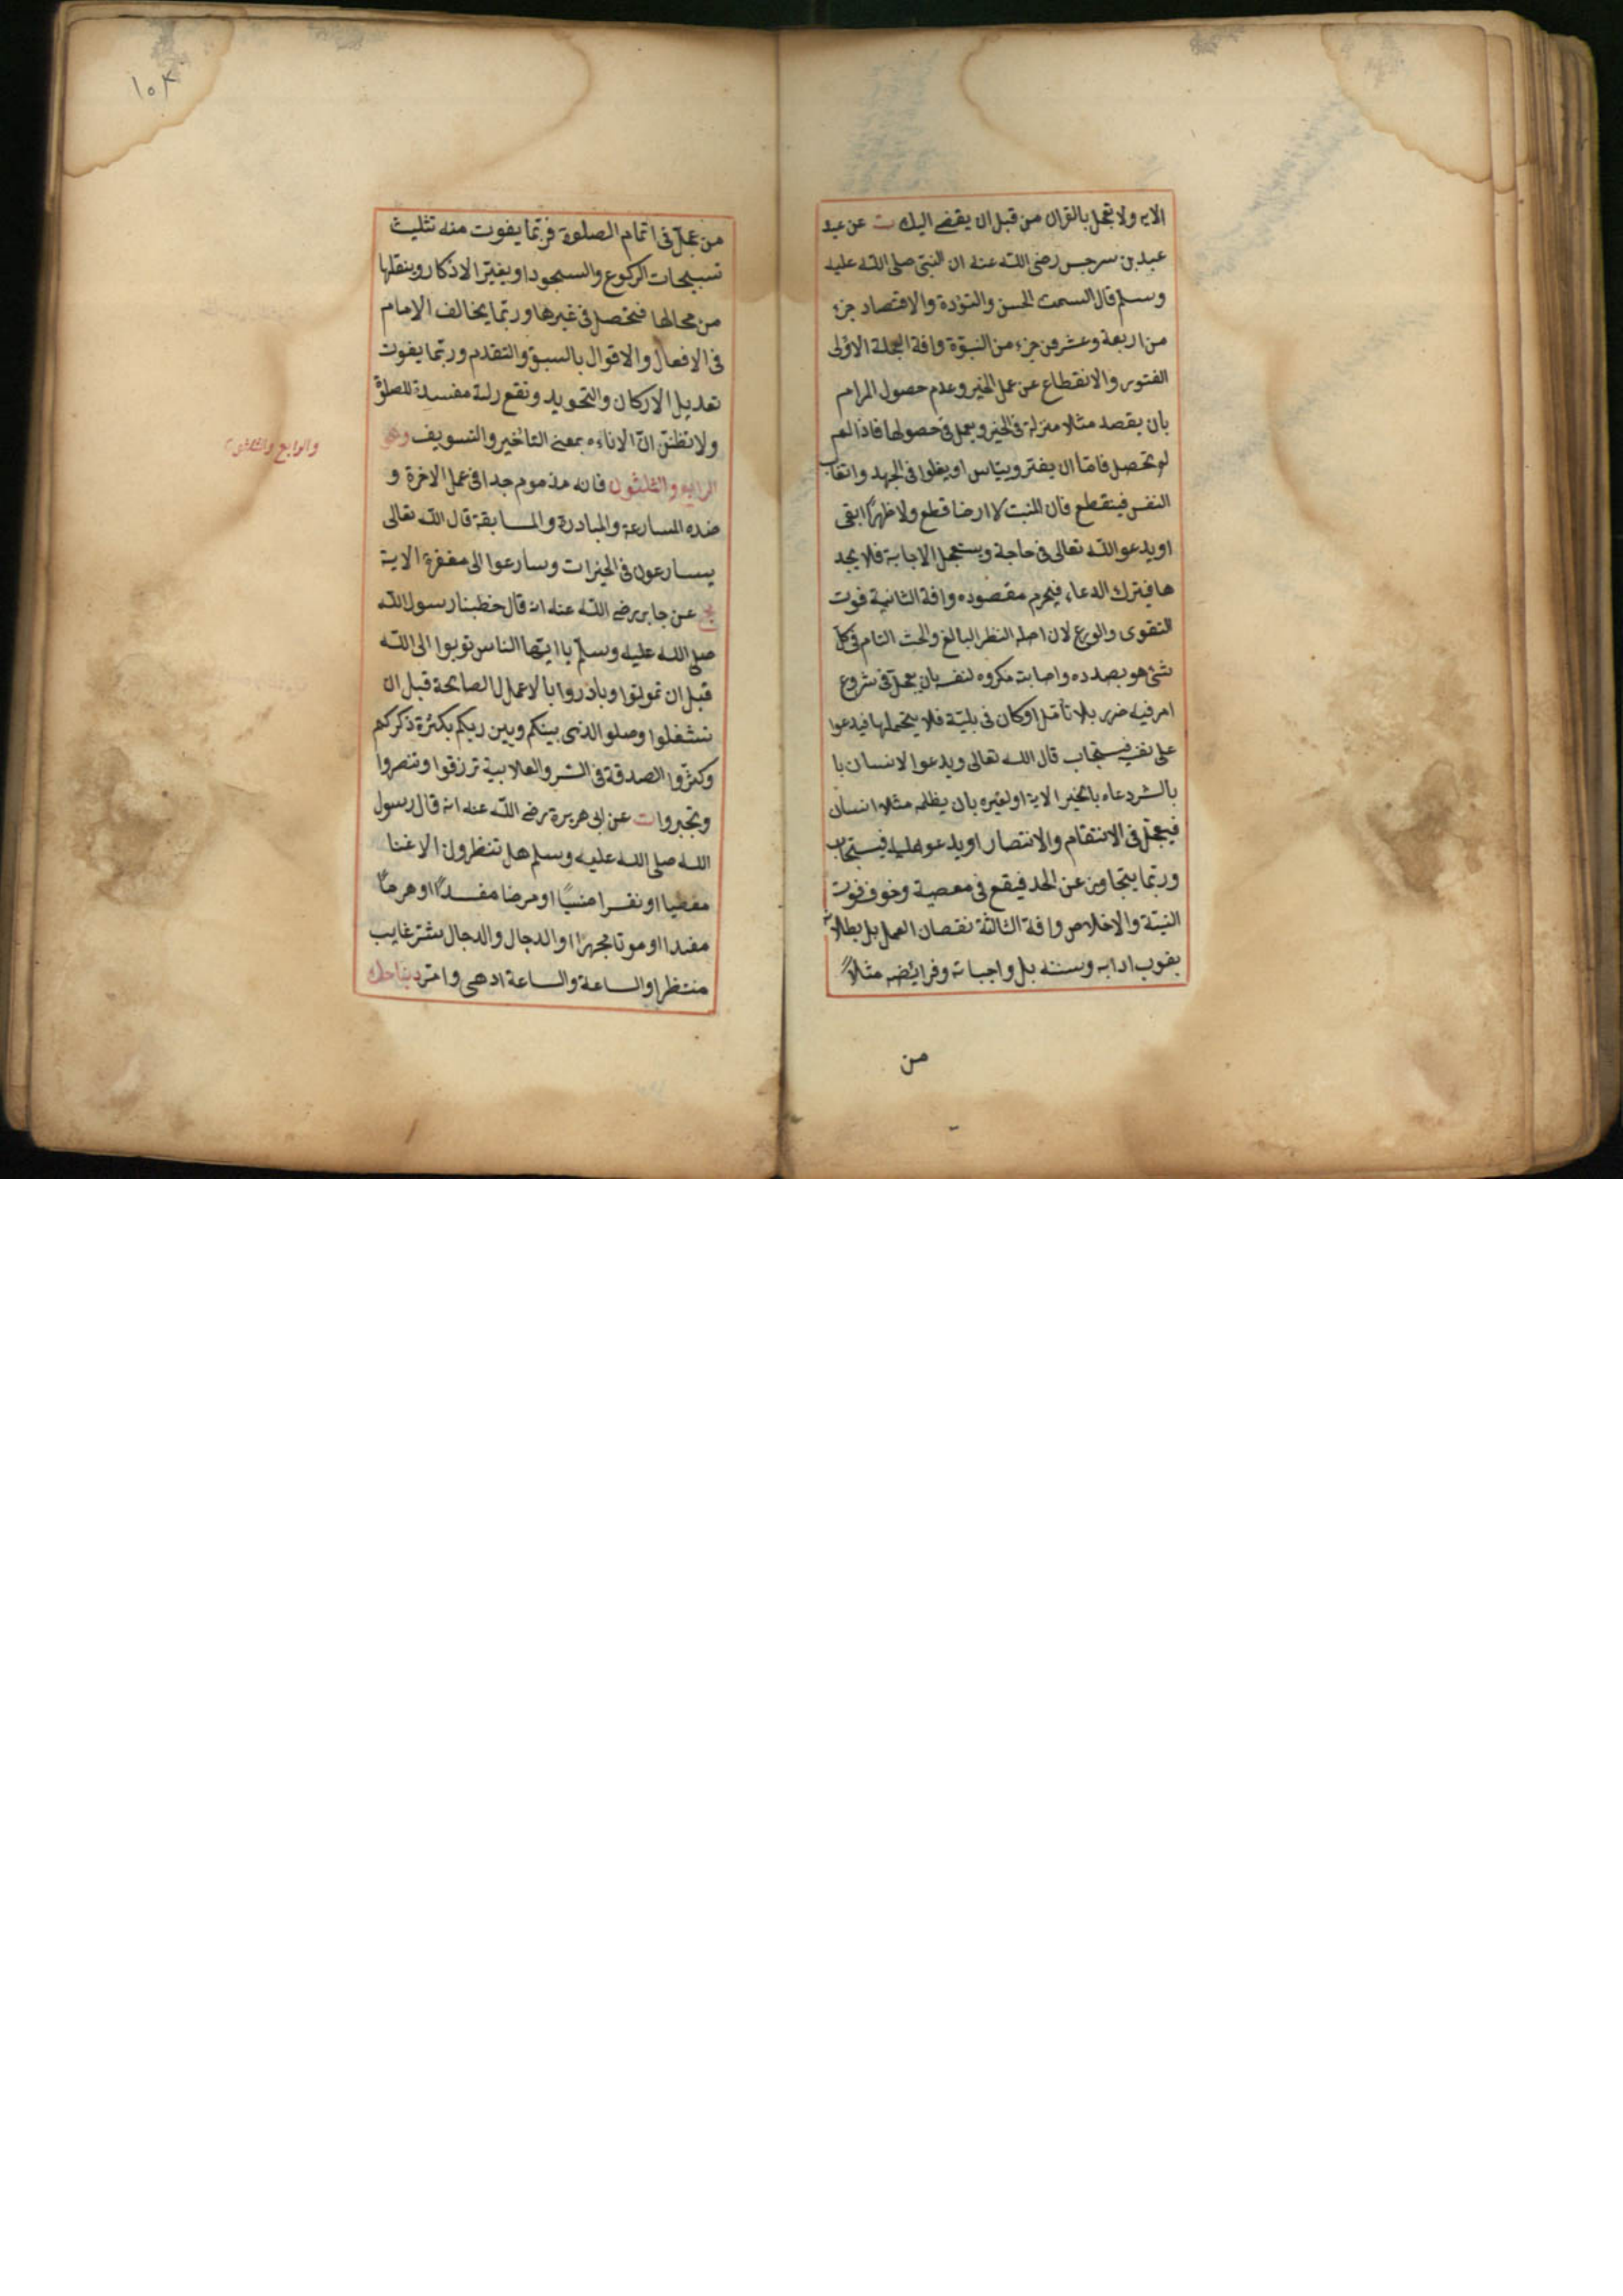 الايه ولا تعجل بالقران من قبل ان يقضى اليك ت عن عبد
عبد بن سرجس رضى الله عنه ان النبى صلى الله عليه
وسلم قال السمت الحسن والتؤدة والاقتصاد جزء
من اربعة وعشرين جزء من النبوّة وافة العجلة الاولى
الفتور والانقطاع عن عمل الخير وعدم حصول المرام
بان يقصد مثلا منزلة فى الخير ويعجل فى حصولها فاذا لم
لم تحصل فامّا ان يفتر وييأس او يغلوا فى الجهد واتعاب
النفس فينقطع فان المنبت لا ارضا قطع ولا ظهرًا ابقى
او يدعوا الله تعالى فى حاجة ويستعجل الاجابة فلا يجد
ها فيترك الدعاء فيحرم مقصوده وافة الثانية فوت
التقوى والورع لان اصله النظر البالغ والبحث التام فى كلّ
شئ هو بصدده واصابته مكروه لنفسه بان يعجل فى شروع
امر فيه ضرر بلا تأمّل او كان فى بليّة فلا يتحملها فيدعوا
على نفسه فيستجاب قال الله تعالى ويدعوا الانسان با
بالشر دعاءه بالخير الاية او لغيره بان يظلمه مثلا انسان
فيعجّل فى الانتقام والانتصار او يدعو عليه فيستجاب
وربّما يتجاوز عن الحد فيقع فى معصية وخوف فوت
النيّة والاخلاص وافة الثالثة نقصان العمل بل بطلانه
بفوت ادابه وسننه بل واجباته وفرايضه مثلاً
من
١٠٨
من عجل فى اتمام الصلوة فربّما يفوت منه تثليث
تسبيحات الركوع والسجود او يغيّر الاذكار وينقلها
من محالها فتحصل فى غيرها وربّما يخالف الامام
فى الافعال والاقوال بالسبق والتقدم وربّما يفوت
تعديل الاركان والتجويد وتقع زلة مفسدة للصلوة
ولا تظنن انّ الاناءه بمعنى التأخير والتسويف وهو
الرابع والثلثون فانه مذموم جدا فى عمل الاخرة و
ضده المسارعة والمبادرة والمسابقة قال الله تعالى
يسارعون فى الخيرات وسارعوا الى مغفرة الاية
عن جابر رضى الله عنه انه قال خطبنا رسول الله
صلى الله عليه وسلّم يا ايّها الناس توبوا الى الله
قبل ان تموتوا وبادروا بالاعمال الصالحة قبل ان
تشغلوا وصلو الذى بينكم وبين ربكم بكثرة ذكركم
وكثّروا الصدقة فى السّر والعلانية ترزقوا وتنصروا
وتجبروا ت عن ابى هريرة رضى الله عنه انه قال رسول
الله صلى الله عليه وسلم هل تنظرون الا غنا
مطغيا او فقرا منسيًا او مرضا مفسدًا او هرمًا
مفندا او موتا مجهزا او الدجال والدجال شرّ غايب
منتظر او الساعة والساعة ادهى وامر
والرابع والثلثون